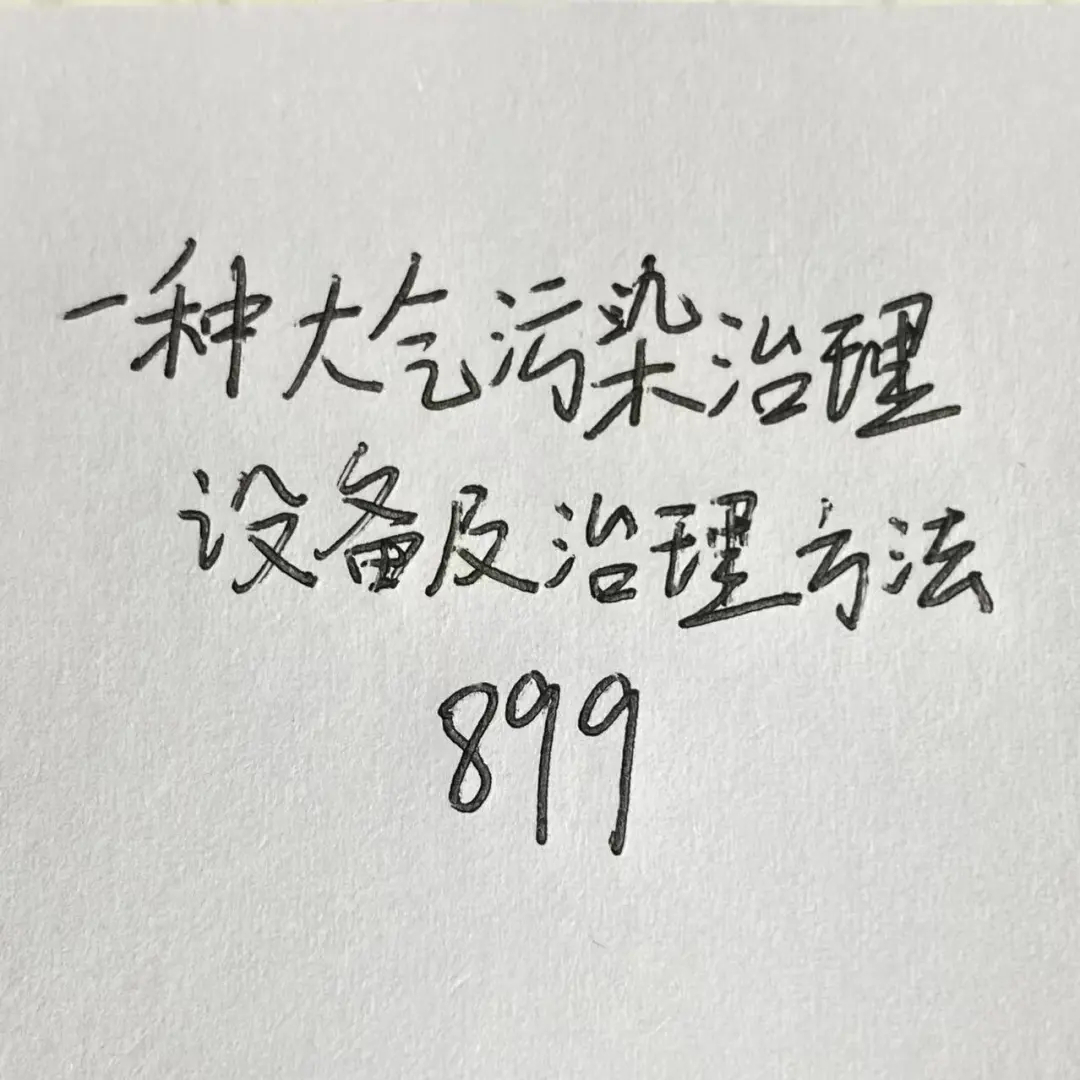 一种大气污染治理
设备及治理方法
899